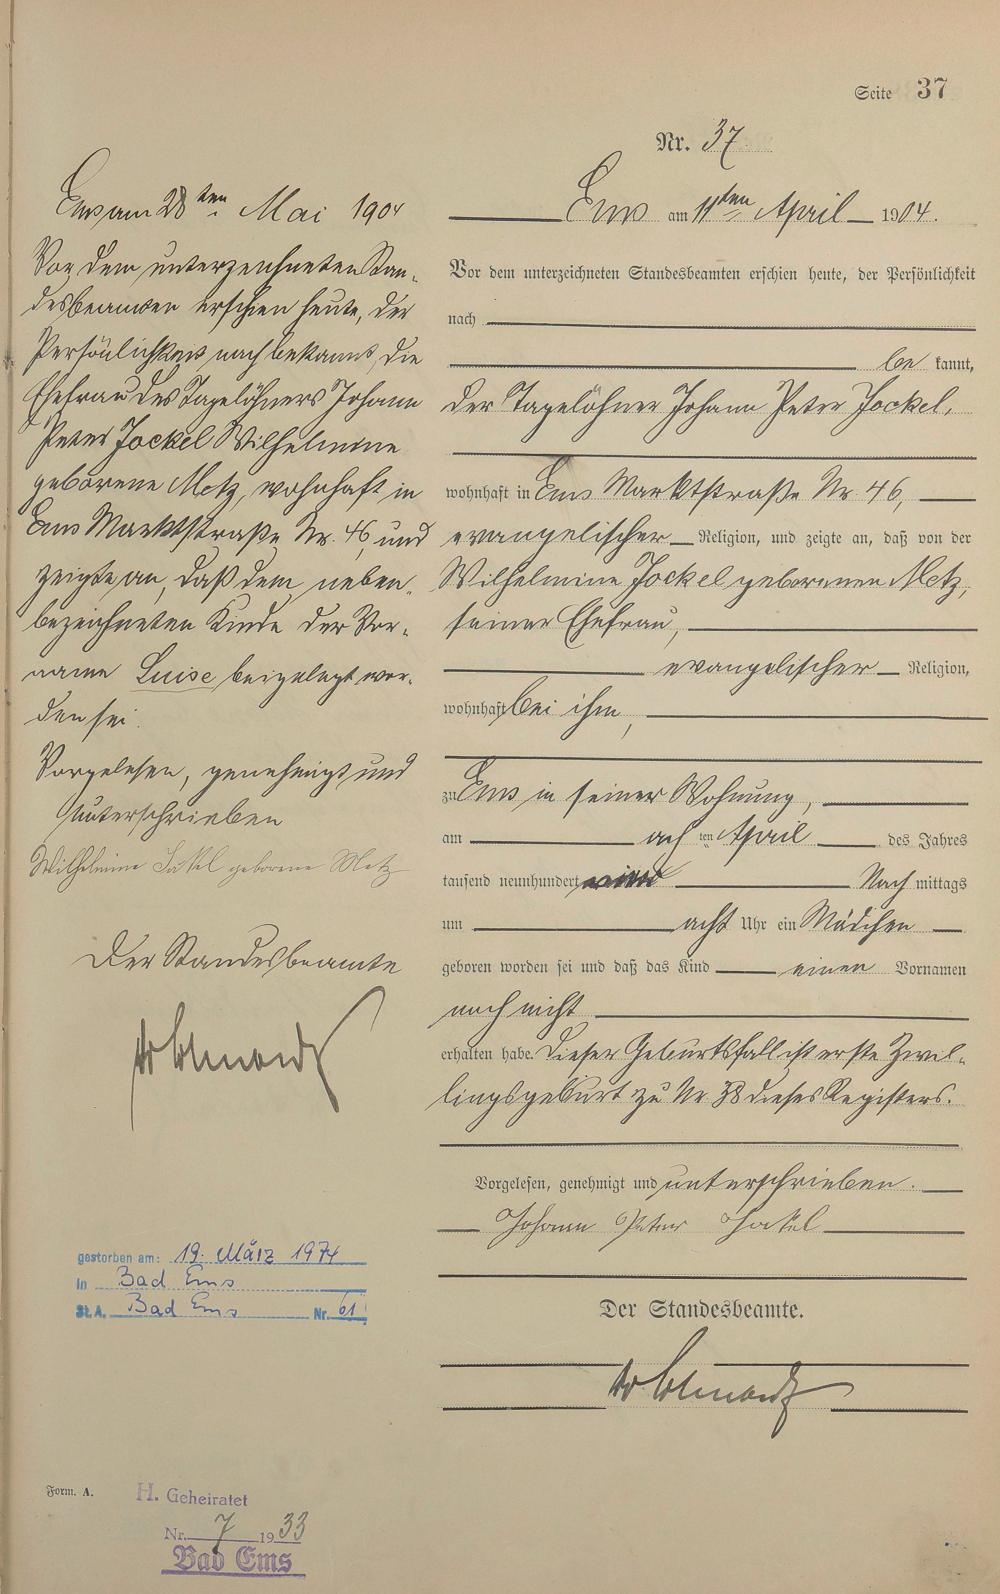 Seite 37
Nr. 37
Ems am 28ten Mai 1904
Vor dem unterzeichneten Stan-
desbeamten erschien heute, der
Persönlichkeit nach bekannt, die
Ehefrau des Tagelöhners Johann
Peter Jockel Wilhelmine
geborene Metz, wohnhaft in
Ems Marktstraße Nr. 46, und
zeigte an, daß dem neben-
bezeichneten Kinde der Vor-
name Luise beigelegt wor-
den sei.
Vorgelesen, genehmigt und
unterschrieben
Wilhelmine Jakel geborene Metz
Der Standesbeamte
gestorben am: 19. März 1974
in Bad Ems
St.A. Bad Ems Nr. 61
Form. A.
H. Geheiratet
Nr. 7 1933
Bad Ems
Ems am 11ten April 1904.
Vor dem unterzeichneten Standesbeamten erschien heute, der Persönlichkeit
nach
bekannt,
der Tagelöhner Johann Peter Jockel,
wohnhaft in Ems Marktstraße Nr. 46,
evangelischer Religion, und zeigte an, daß von der
Wilhelmine Jockel geborenen Metz,
seiner Ehefrau,
evangelischer Religion,
wohnhaft bei ihm,
zu Ems in seiner Wohnung,
am acht ten April des Jahres
tausend neunhundert vier Nach mittags
um acht Uhr ein Mädchen
geboren worden sei und daß das Kind einen Vornamen
noch nicht
erhalten habe. Dieser Geburtsfall ist erste Zwil-
lingsgeburt zu Nr. 38 dieses Registers.
Vorgelesen, genehmigt und unterschrieben.
Johann Peter Jakel
Der Standesbeamte.